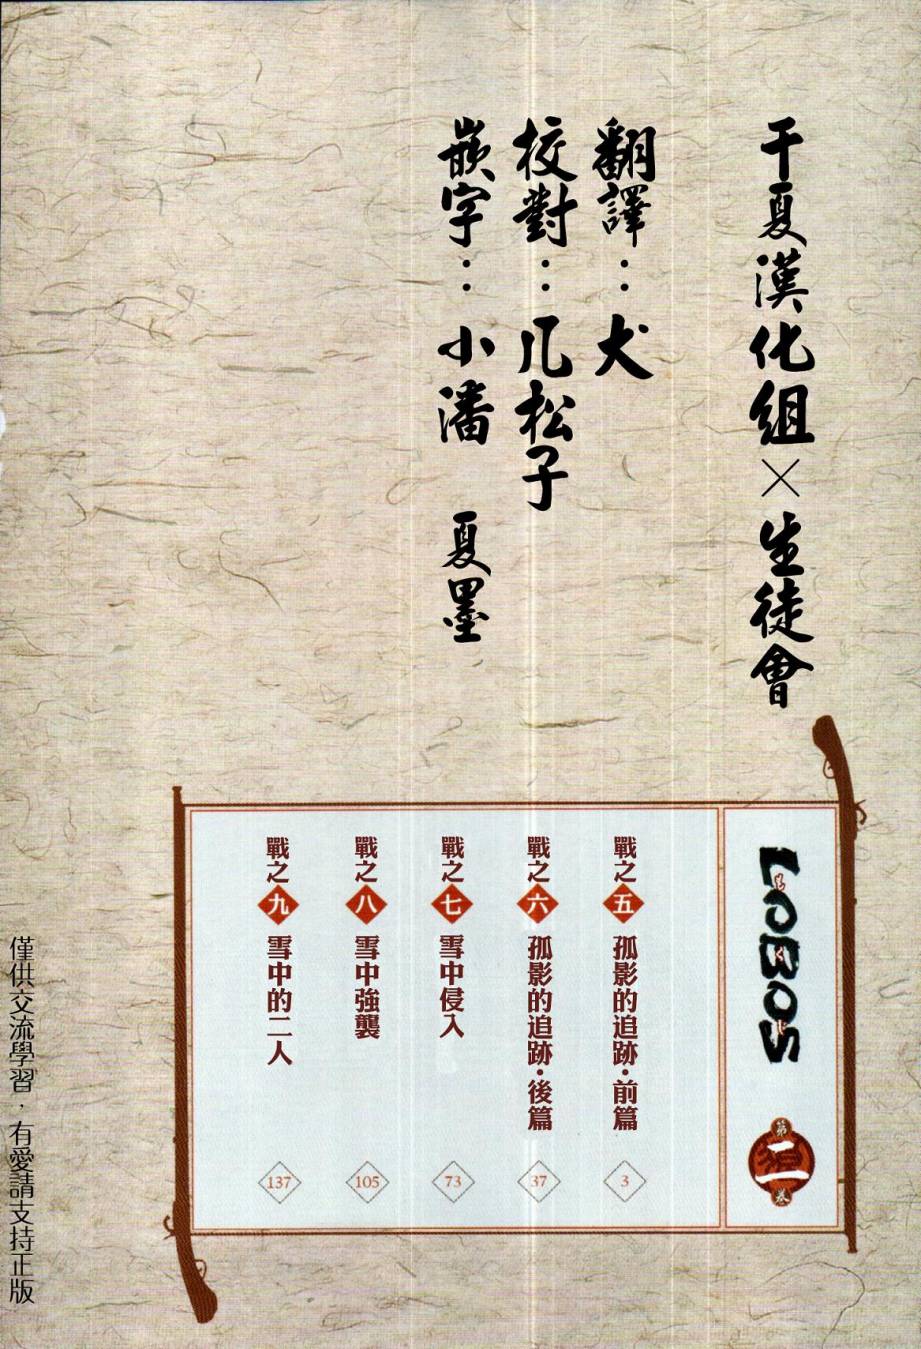 千夏漢化組×生徒會
翻譯：犬
校對：几松子
嵌字：小潘　夏墨
LOBOS
第二卷
戰之五 孤影的追跡·前篇 3
戰之六 孤影的追跡·後篇 37
戰之七 雪中侵入 73
戰之八 雪中強襲 105
戰之九 雪中的二人 137
僅供交流學習．有愛請支持正版